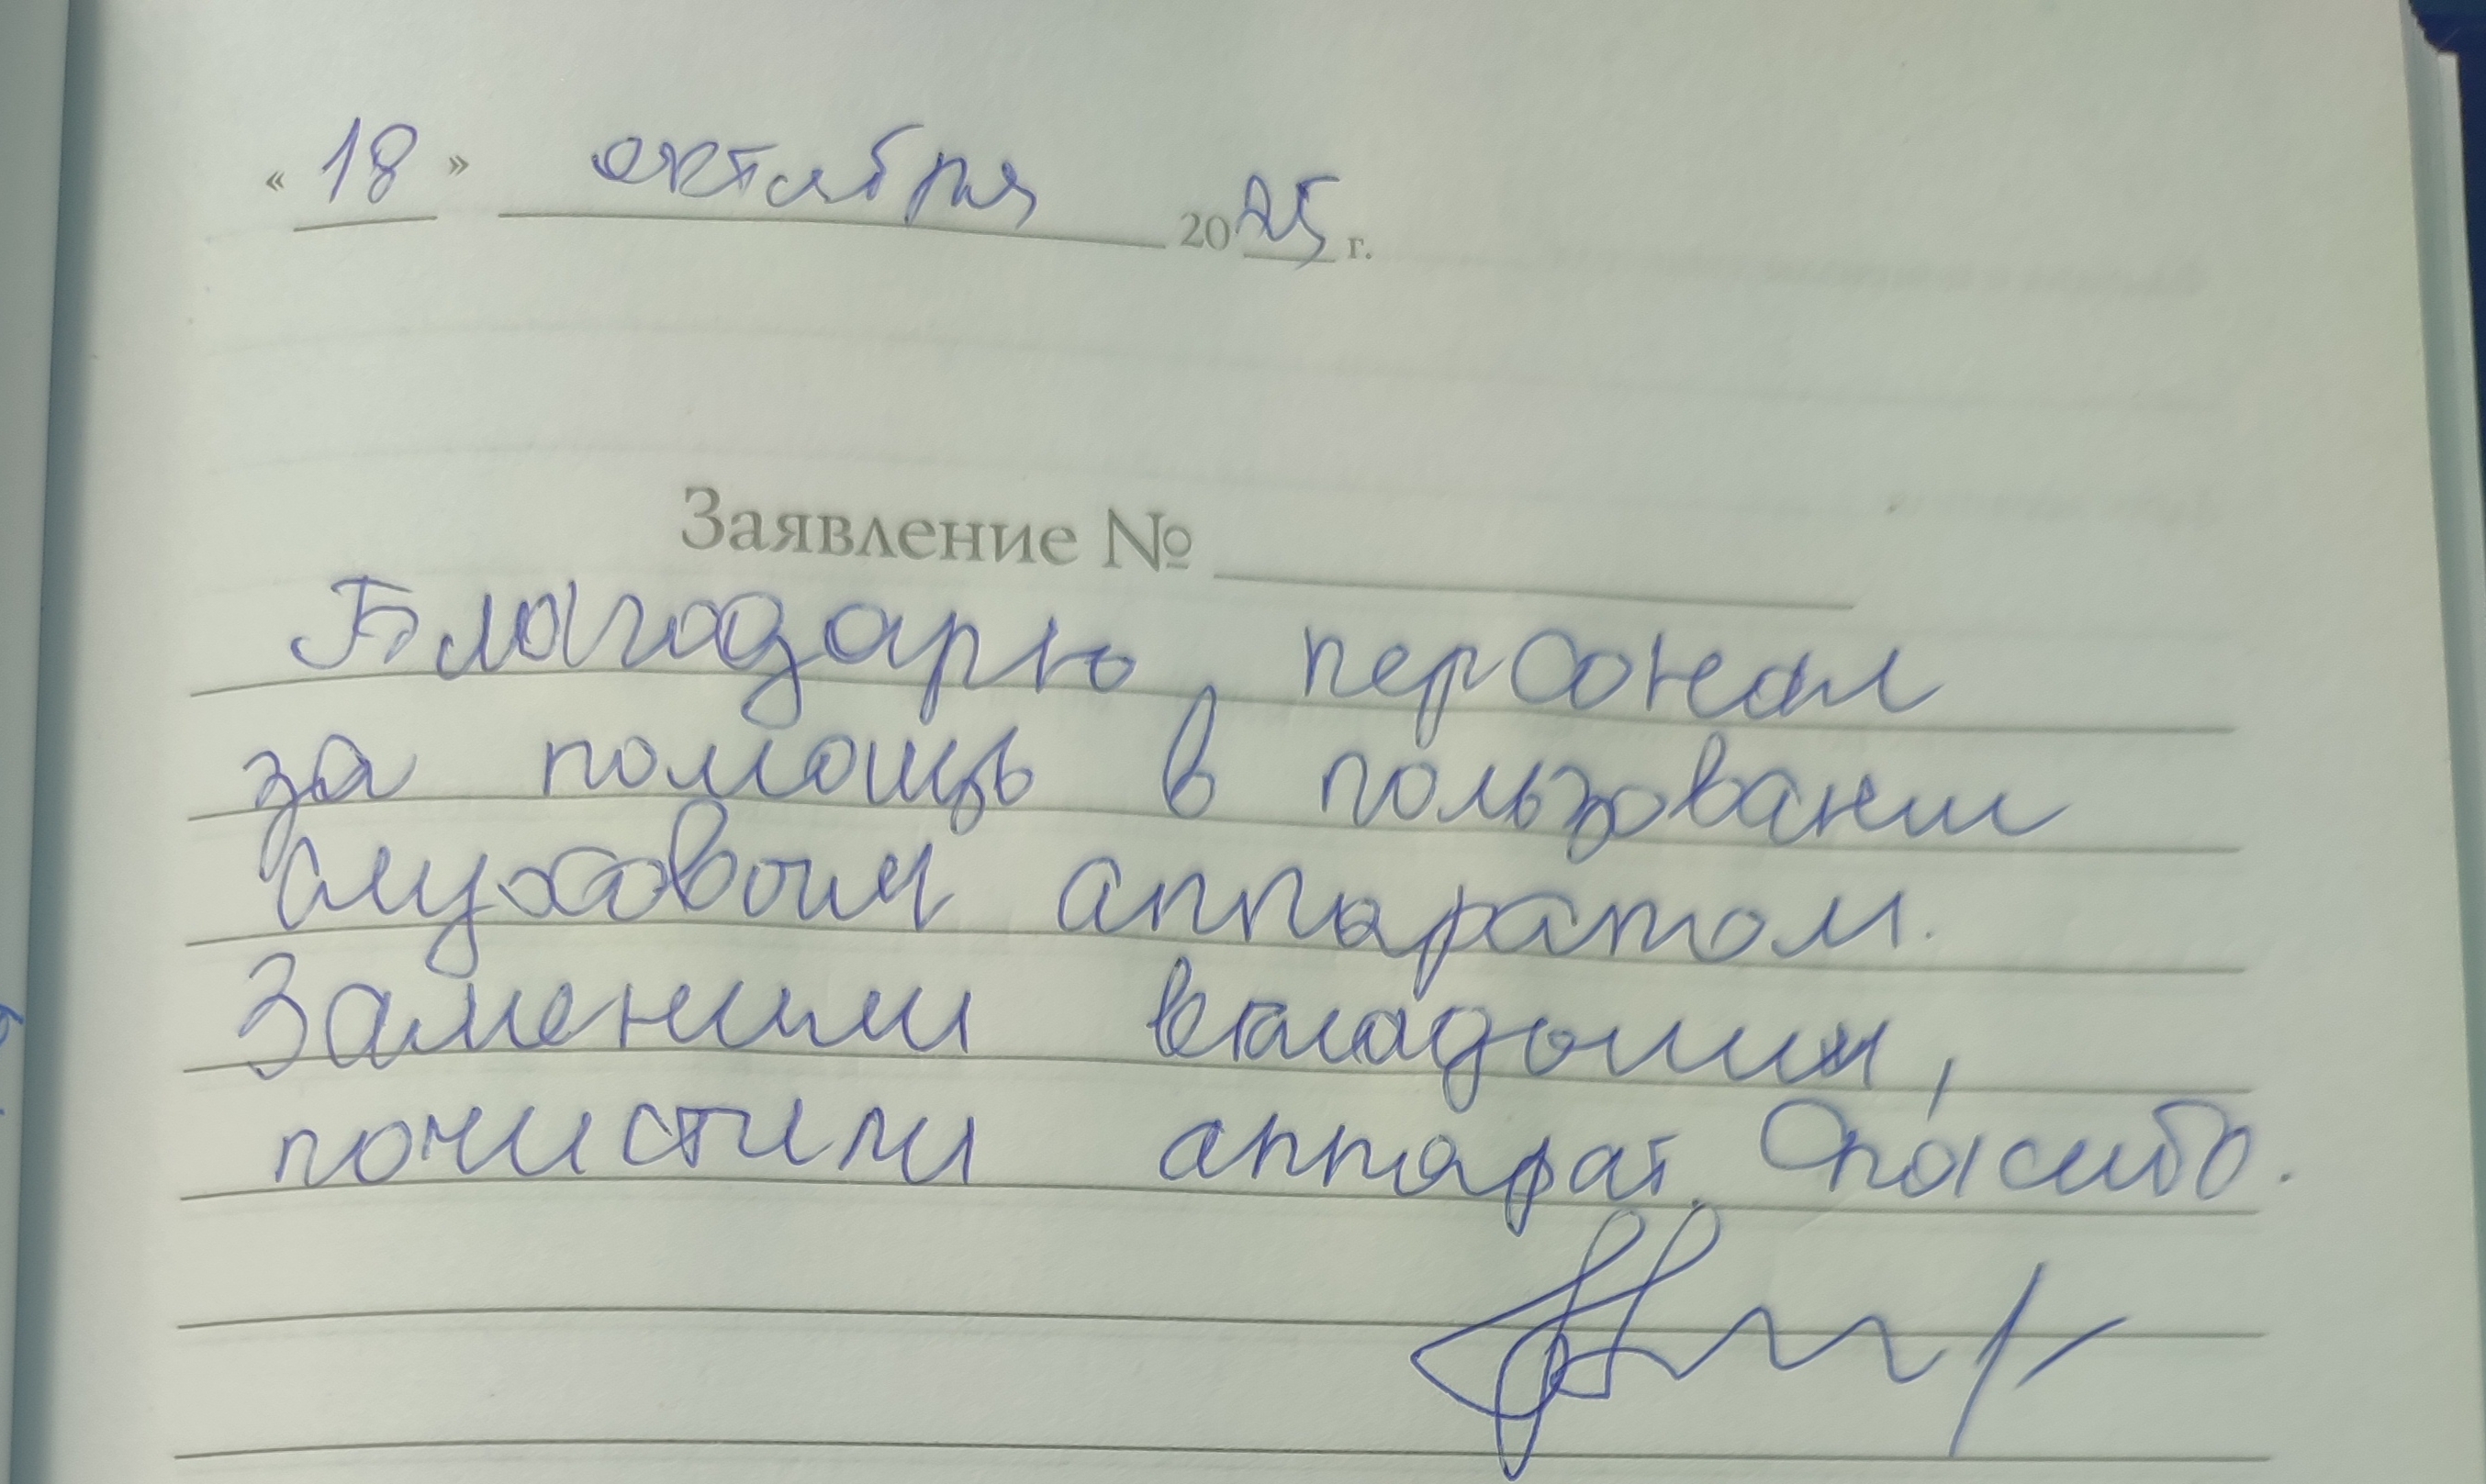 « 18 » октября 2025 г.
Заявление № 
Благодарю персонал
за помощь в пользовании
слуховым аппаратом.
Заменили вкладыши,
почистили аппарат. Спасибо.